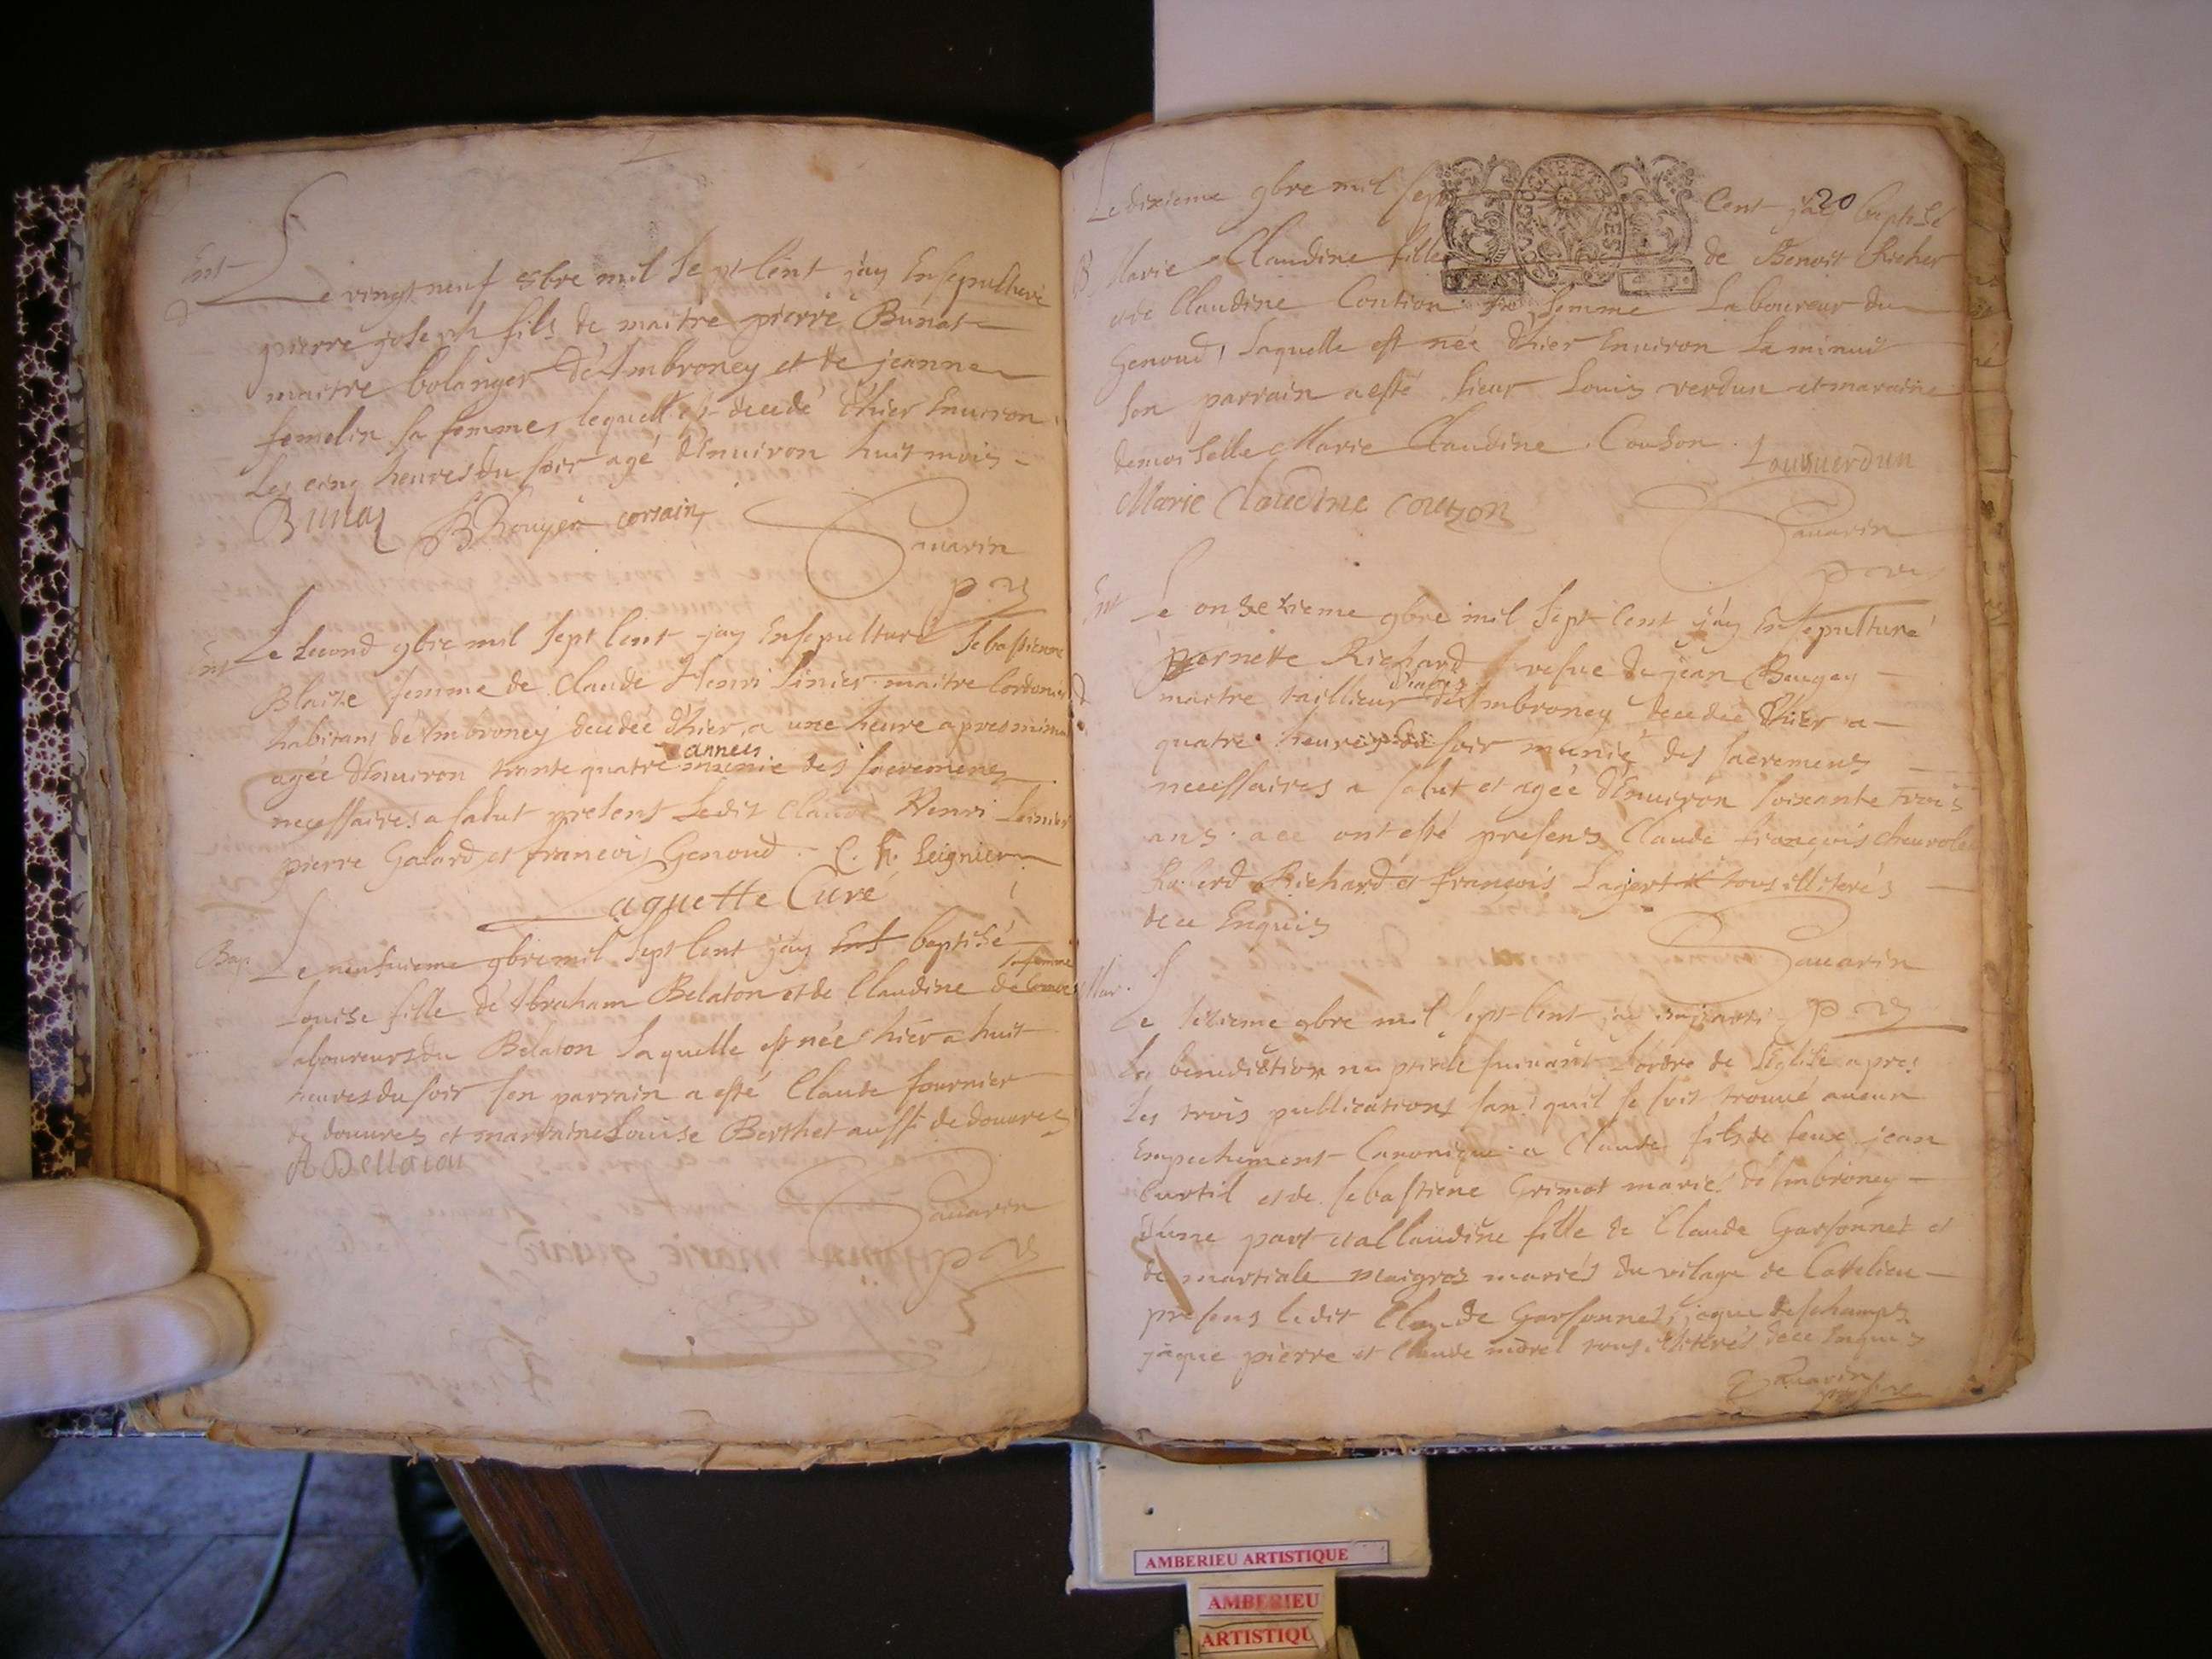 Ent
Le vingt neuf 8bre mil sept Cent jay Ensepulturé
pierre joseph fils de maitre pierre Bunat
maitre bolanger d'Ambroney et de jeanne
femelin sa femme, lequelt est decedé d'hier Environ
les cinq heures du soir agé d'Environ huit mois
Bunat BRouyer corsain
Savarin
p. vi
Ent
Le second 9bre mil sept Cent jay Ensepulturé Sebastienne
Blaise femme de Claude Henri Sinier maitre Cordonier
habitant d'Ambroney decedée d'hier a une heure apres minui
agée d'Environ trente quatre années munie des sacremens
necessaires a salut present ledit Claude Henri Sinier
pierre Galard et francois Genoud. C. h. Seignier
Laquette Curé
Bap.
Le neufvieme 9bre mil sept Cent jay Ent baptisé
Louise fille d'Abraham Belaton et de Claudine de Combes sa femme
laboureurs du Belaton laquelle est née hier a huit
heures du soir son parrain a esté Claude fournier
de douvres et marraine Louise Berthet aussi de douvres
A Bellaton
Savarin
Le dixieme 9bre mil sept Cent jai baptisé
20
B Marie Claudine fille de Benoit Richer
et de Claudine Coution sa femme Laboureur du
Genoud, laquelle est née d'hier Environ la minuit
son parrain a esté sieur Louis verdun et maraine
demoiselle Marie Claudine Couson. Louis verdun
Marie Claudine couzon
Savarin
Ent
Le onzetieme 9bre mil sept Cent j'ay Ensepulturé
pernette Richard vefve de jean Baugey
maitre taillieur d'Ambroney decedée d'hier a
quatre heures du soir munie des sacremens
necessaires a salut et agée d'Environ soixante trois
ans. a ce ont esté presens Claude françois chevrole
Richard et françois Lagert tous illiterés
de ce Enquis
Savarin
Mar.
Le sezieme 9bre mil sept Cent p. vi
la benediction nuptiale suivant l'ordre de l'Eglise apres
les trois publications sans quil se soit trouvé aucun
Empechement Canonique a Claude fils de feux jean
Curtil et de sebastiene Grimat mariés d'Ambroney
d'une part et a Claudine fille de Claude Garsonnet et
de martiale maigroz mariés du vilage de Cottelieu
presens ledit Claude Garsonnet, jaque deschamps
jaque pierre et Claude morel tous illiterés de ce Enquis
Savarin
AMBERIEU ARTISTIQUE
AMBERIEU
ARTISTIQU